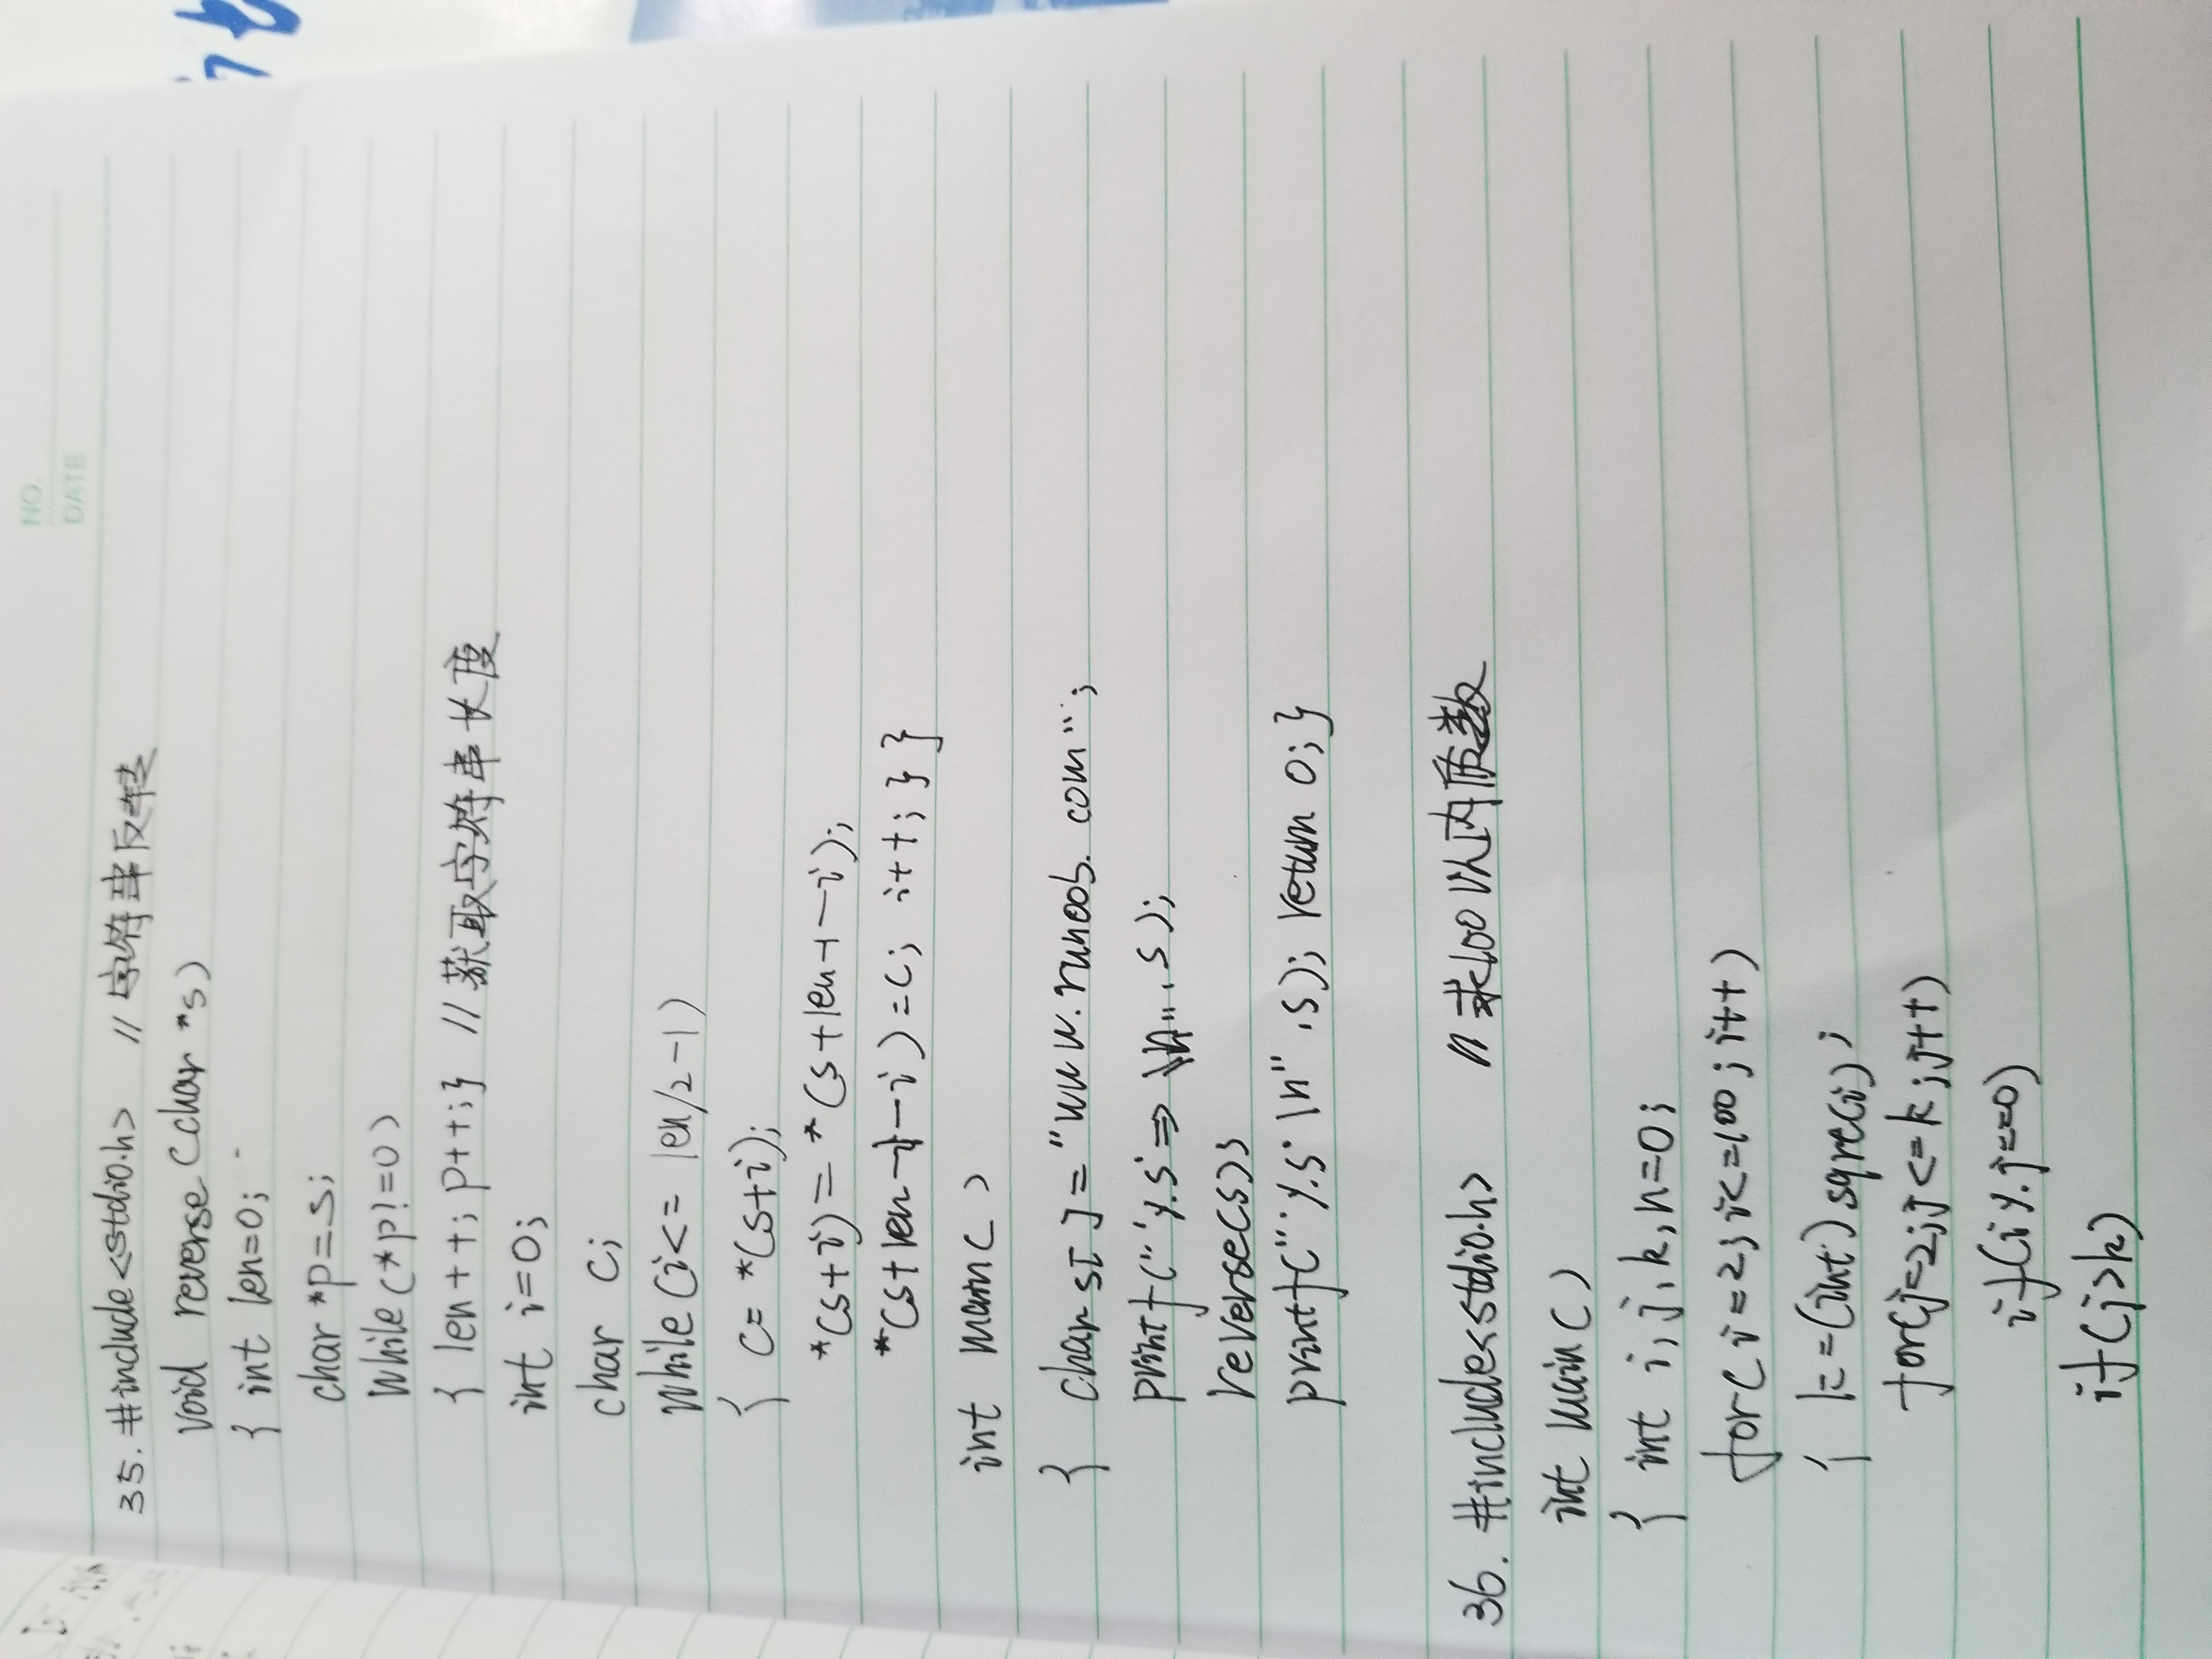 NO.
DATE
35. #include<stdio.h> //字符串反转
void reverse(char *s)
{ int len=0;
char *p=s;
while(*p!=0)
{ len++; p++;} //获取字符串长度
int i=0;
char c;
while(i<= len/2-1)
{ c= *(s+i);
*(s+i)= *(s+len-1-i);
*(s+len-1-i)=c; i++; } }
int main( )
{ char s[ ]="www.runoob.com";
printf("'%s' => \n", s);
reverse(s);
printf("'%s' \n", s); return 0; }
36. #include<stdio.h> //求100以内质数
int main( )
{ int i, j, k, n=0;
for(i=2; i<=100; i++)
{ k=(int)sqre(i);
for(j=2; j<=k; j++)
if(i%j==0)
if(j>k)